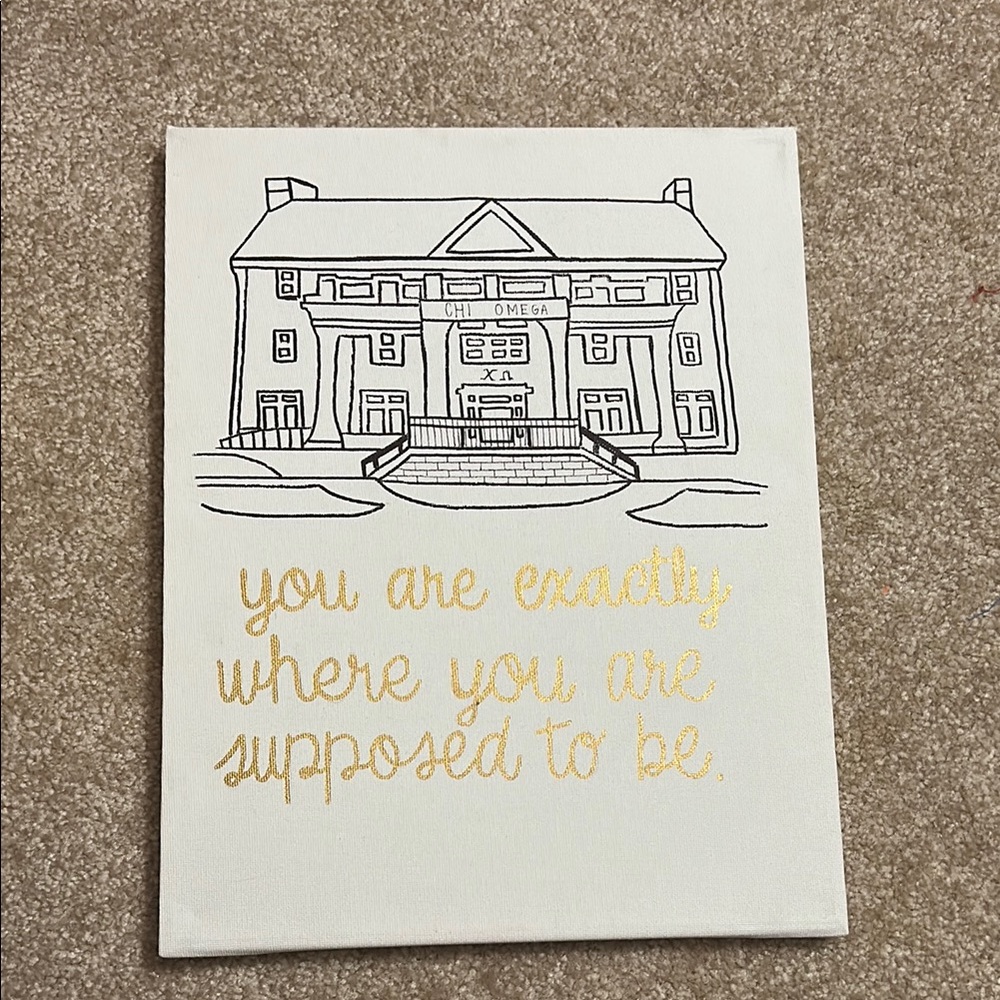 CHI OMEGA
ΧΩ
you are exactly
where you are
supposed to be.